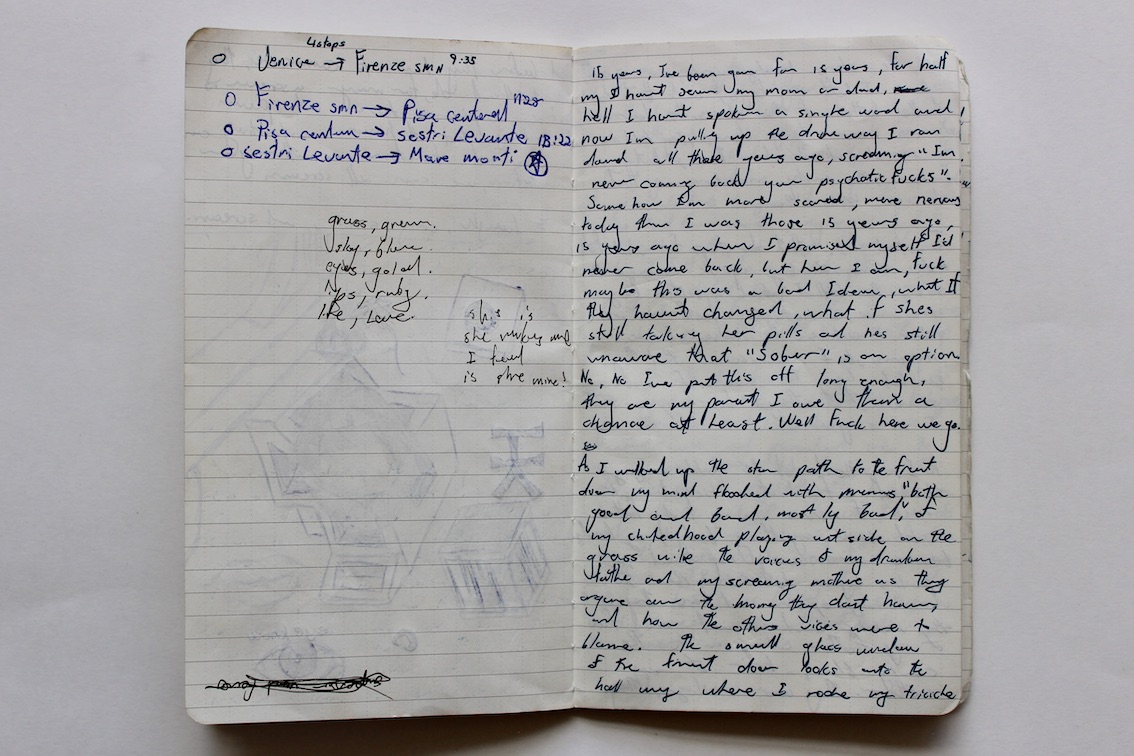 4 stops
Venice → Firenze SMN 9:35
Firenze smn → Pisa centeral 11:28
Pisa centum → sestri Levante 13:22
sestri Levante → Mare monti
grass, green.
sky, blue.
eyes, gold.
lips, ruby.
like, Love.
she is
she makes me
I feel
is she mine!
15 years, Ive been gon for 15 years, for half
my I havnt seen my mom or dad,
hell I havnt spoken a single word and
now Im pulling up the driveway I ran
down all those years ago, screaming "Im
never coming back your psychotic fucks".
Somehow Im more scared, more nervous
today then I was those 15 years ago,
15 years ago when I promised myself I'd
never come back, but here I am, fuck
maybe this was a bad Idea, what If
they havnt changed, what if shes
still taking her pills and hes still
unaware that "Sober" is an option.
No, No Ive put this off long enough,
they are my parent I owe them a
chance at least. Well fuck here we go.
As I walked up the stone path to the front
door my mind flooded with memories, both
good and bad, mostly bad, of
my childhood playing outside on the
grass while the voices of my drunken
father and my screaming mother as they
argue over the money they dont have,
and how the others vices were to
blame. The small glass window
of the front door looks into the
hall way where I rode my tricicle